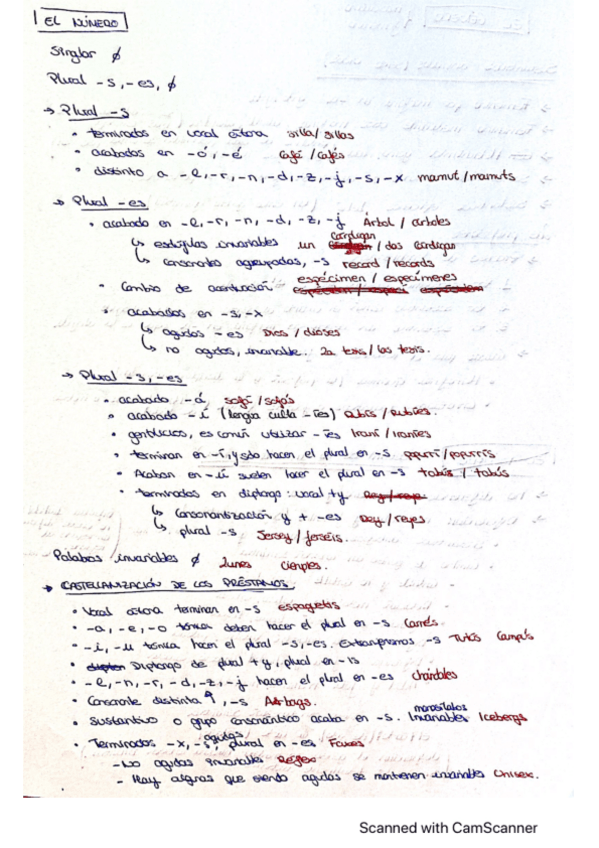 EL NÚMERO
Singlar ∅
Plural -s, -es, ∅
→ Plural -s
• terminados en vocal átona silla/sillas
• acabados en -ó, -é Café/cafés
• distinto a -l, -r, -n, -d, -z, -j, -s, -x mamut/mamuts
→ Plural -es
• acabado en -l, -r, -n, -d, -z, -j Árbol / árboles
↳ esdrújulas invariables un cardigan / dos cardigan
↳ consonantes agrupadas, -s record / records
• Cambio de acentuación espécimen / especímenes
• acabados en -s, -x
↳ agudos -es Dios / dioses
↳ no agudos, invariable. La tesis / las tesis.
→ Plural -s, -es
• acabado -á sofá / sofás
• acabado -í (lengua culta -íes) Rubís / Rubíes.
• gentilicios, es común utilizar -íes Iraní / Iraníes
• terminan en -í, y sólo hacen el plural en -s popurrí / popurrís
• Acaban en -ú suelen hacer el plural en -s tabús / tabús
• terminados en diptongo: vocal + y
↳ Consonantización y + -es Rey / reyes
↳ plural -s Jersey / jerséis.
Palabras invariables ∅ Lunes Ciempies.
→ CASTELLANIZACIÓN DE LOS PRÉSTAMOS
• Vocal átona terminan en -s espaguetis
• -a, -e, -o tónica deben hacer el plural en -s Carnés.
• -i, -u tónica hacen el plural -s, -es. Extranjerismos -s Tutús Campús
• Diptongo de plural + y, plural en -is
• -l, -n, -r, -d, -z, -j hacen el plural en -es chándales
• Consonante distinta ↑, -s Airbags.
• Sustantivo o grupo consonántico acaba en -s. monosílabos Invariables Icebergs
• Terminados -x, -s, agudos plural en -es Faxes
- No agudos invariables Reflex
- Hay algunas que siendo agudas se mantienen invariables Unisex.
Scanned with CamScanner